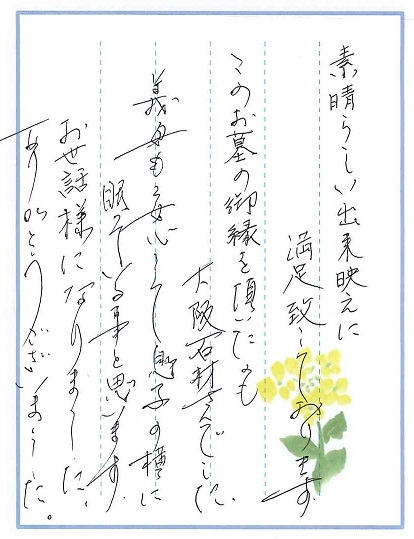 素晴らしい出来映えに
満足致しております
このお墓の御縁を頂いたのも
大阪石材さんでした。
義母も安心して息子の横に
眠っている事と思います
お世話様になりました。
ありがとうございました。